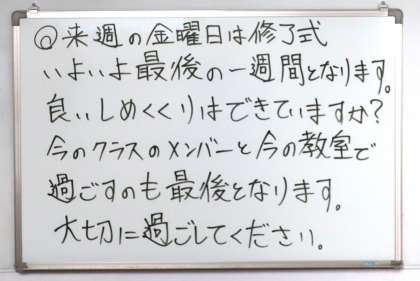 ◎来週の金曜日は修了式
いよいよ最後の一週間となります。
良いしめくくりはできていますか?
今のクラスのメンバーと今の教室で
過ごすのも最後となります。
大切に過ごしてください。